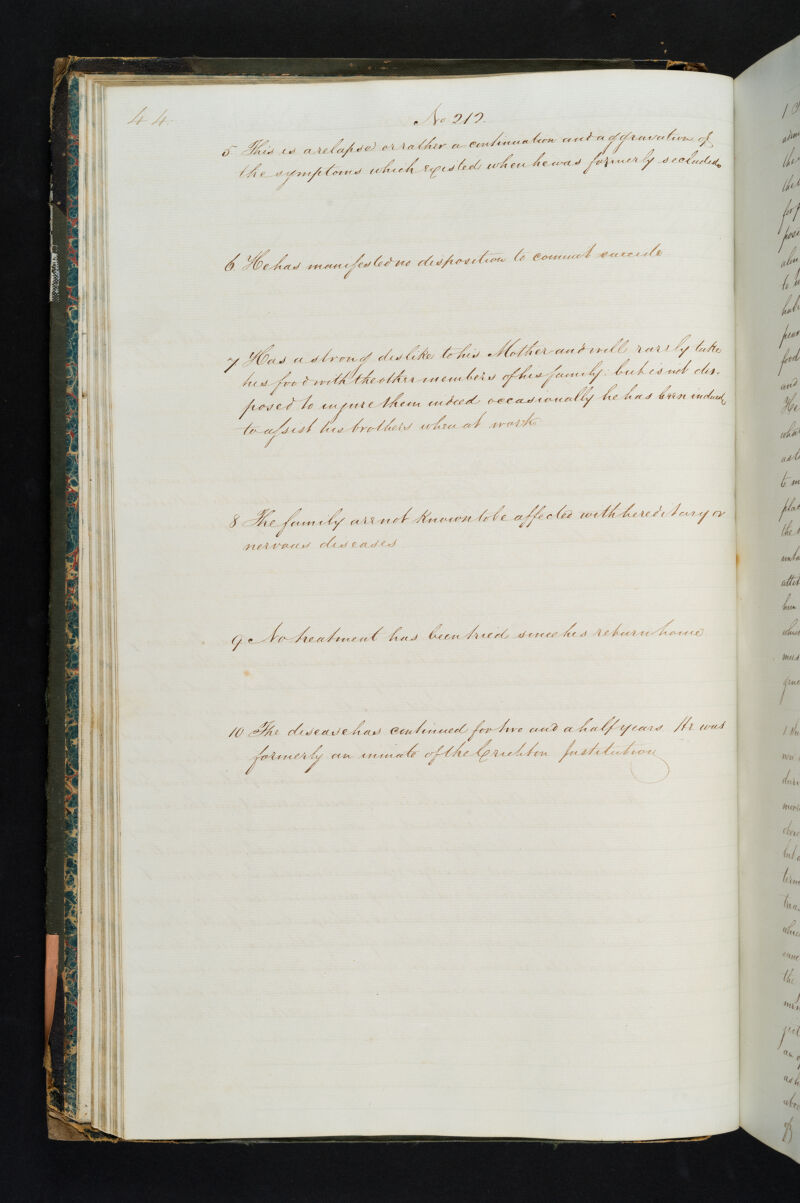 44.
No 212.
5 This is a relapse or rather a continuation and aggravation of
the symptoms which existed when he was formerly secluded
6 He has manifested no disposition to commit suicide
7 Has a strong dislike to his Mother and will rarely take
his food with the other members of his family: but is not dis-
posed to injure them indeed occasionally he has been induced
to assist his brothers when at work
8 The family are not known to be affected with hereditary or
nervous diseases
9 No treatment has been tried since his return home
10 The disease has continued for two and a half years He was
formerly an inmate of the Crichton Institution